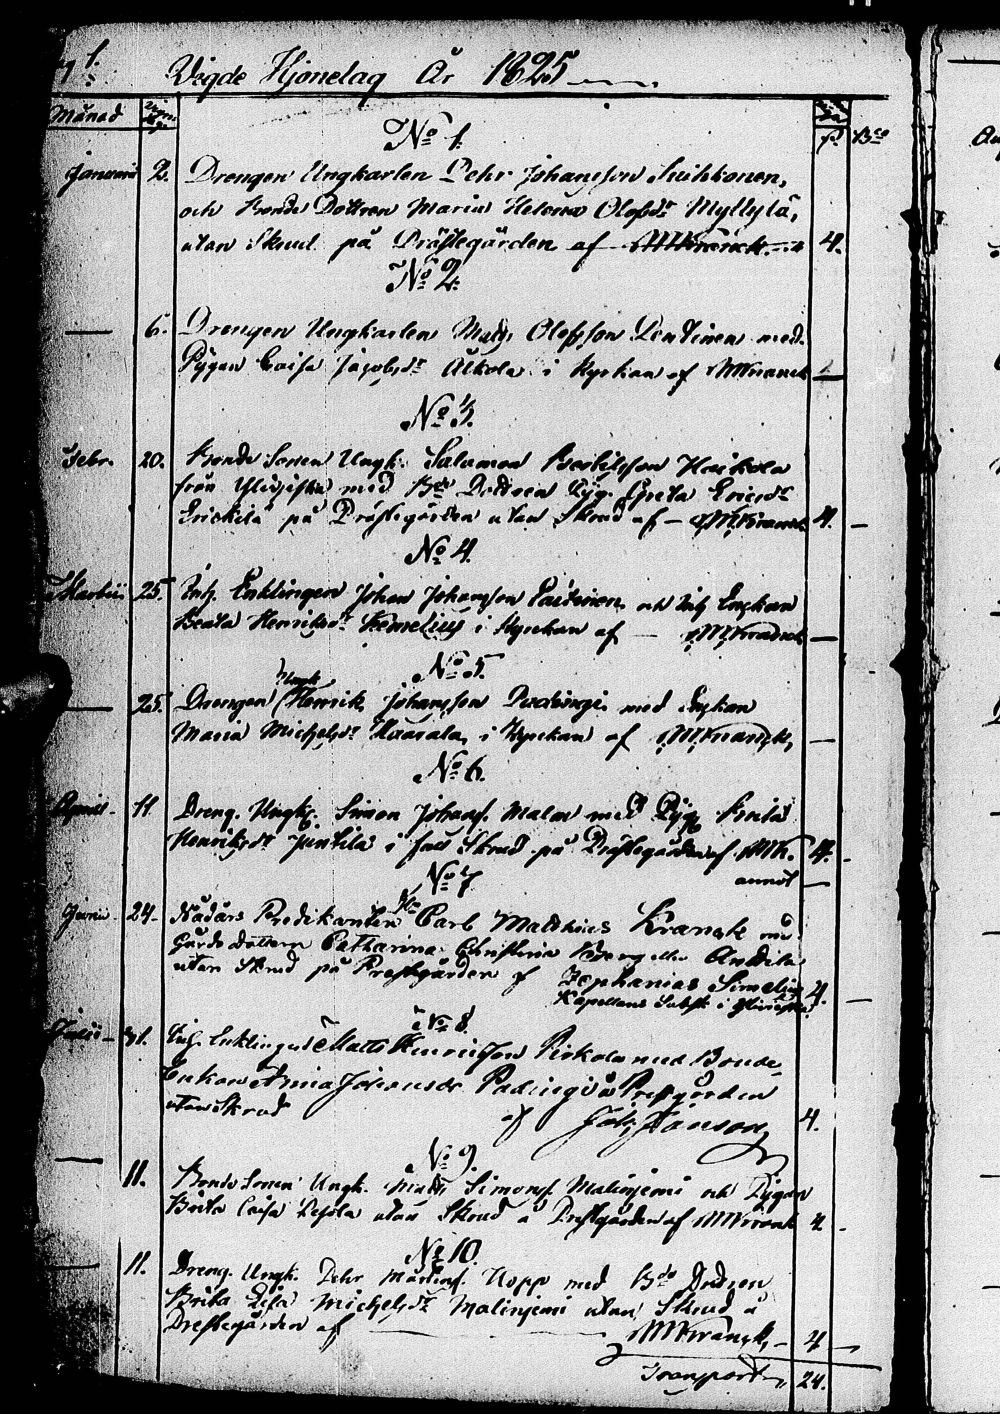 1.
Vigde Hjonelag År 1825
Månad
No 1.
R. Bco
Januarii 2. Drengen Ungkarlen Pehr Johansson Suihkonen,
och Bonde Dottren Maria Helena Olofsdr Myllylä,
utan Skrud på Prästegården af MWranck 4.
No 2.
6. Drengen Ungkarlen Matts Olofsson Pentinen med
Pygan Caisa Jacobsdr Alkola i Kyrkan af
No 3.
Febr. 20. Bonde Sonen Ungk. Salomon Bertilsson Haikola
från Ylivjiska med Bde Dottren Pyg. Greta Ericsdr
Erickilä på Prästegården utan Skrud af 4.
No 4.
Martii 25. Enklingen Johan Johansson och Enkan
Beata Henriksdr i Kyrkan af
No 5.
25. Drengen Ungk Henrik Johansson Padingi med Enkan
Maria Michelsdr Haarala, i Kyrkan af
No 6.
April 11 Dreng. Ungk. Simon Johanss. Malan med Pyg. Brita
Henriksdr Juntila i full Skrud på Prästegården af MK. 4.
No 7.
Junii 24. Nådårs Predikanten Hr Carl Matthias Kranck med
Gårds dottern Catharina Christina Andila
utan Skrud på Prestgården af Zephanias Simelius 4.
Kapellans Subst. i
No 8.
Julii 31. Enklingen Matts Henricsson Pirkola med Bonde
Enkan Anna Johansdr Padingi å Prestgården
utan Skrud
af 4.
No 9.
11. Bonde Sonen Ungk. Matts Simonss. Malinjemi och Pygan
Brita Caisa utan Skrud å Prestgården af 4
No 10.
11. Dreng. Ungk. Pehr Mårtenss. Hopp med Bde Dottren
Brita Lisa Michelsdr Malinjemi utan Skrud å
Prestegården af 4
Transport 24.